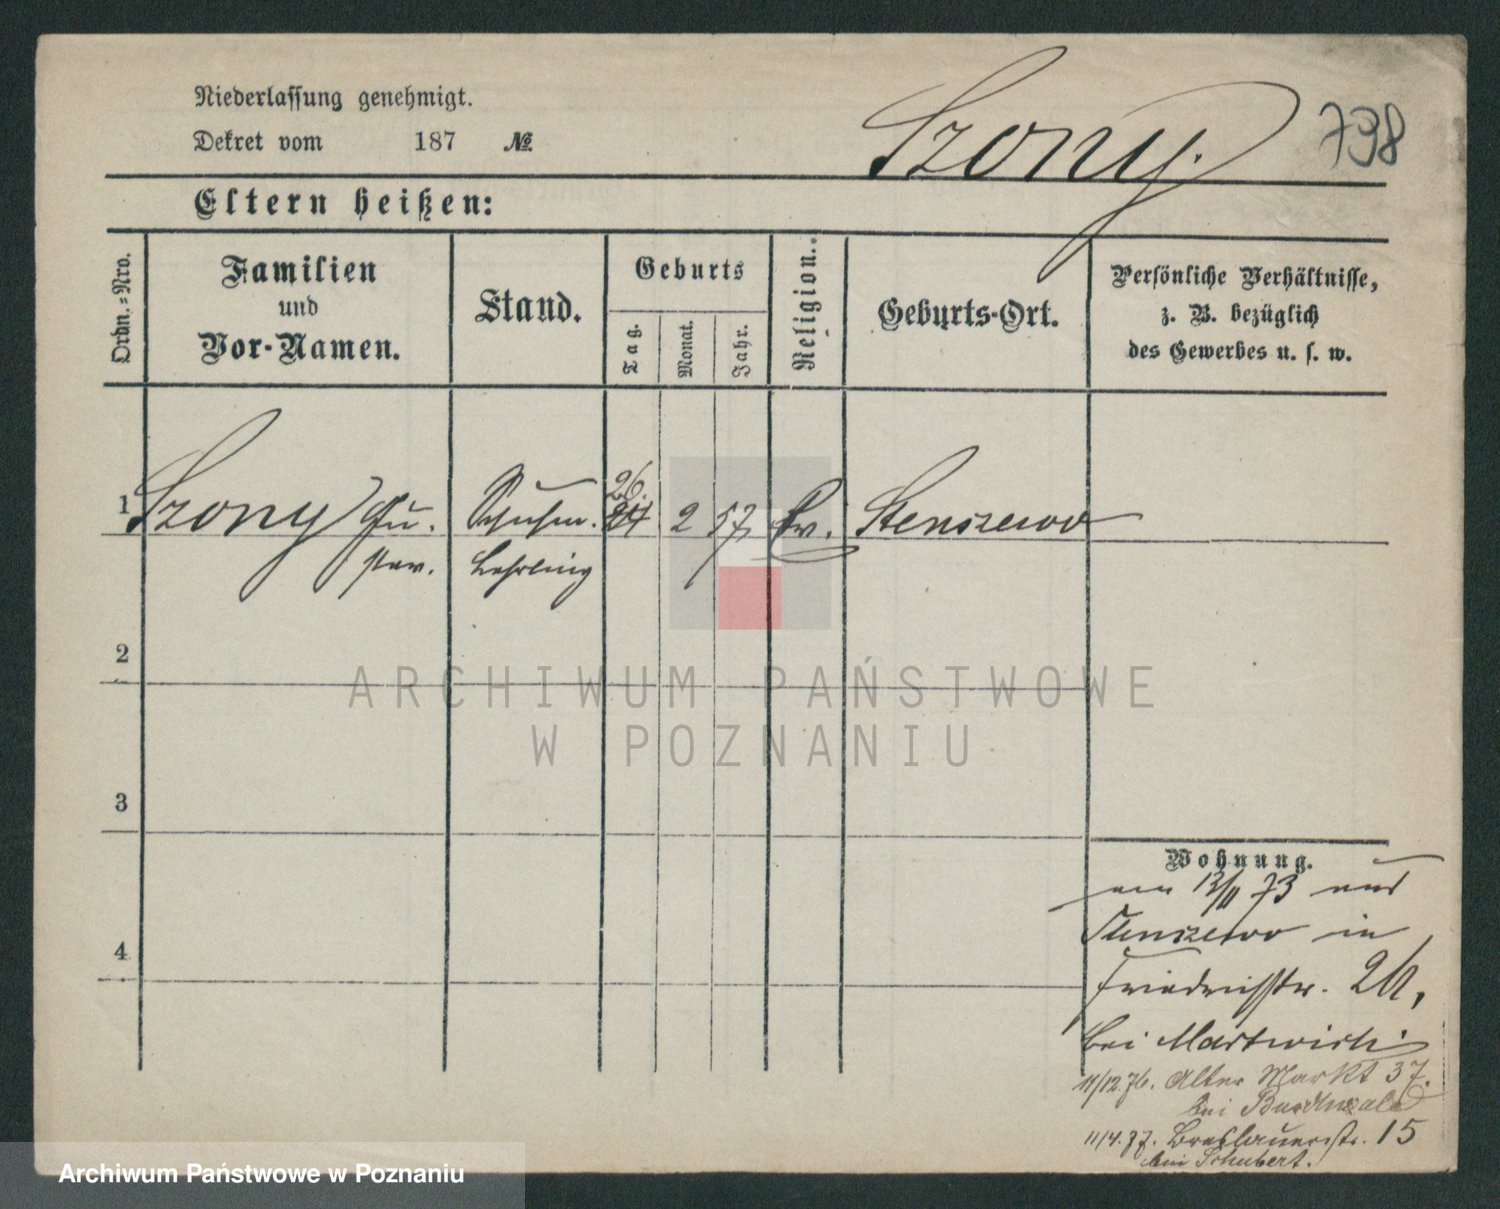 Niederlassung genehmigt.
Dekret vom 187 №
Szony.
798
Eltern heißen:
Ordn.=Nro.
Familien
und
Vor-Namen.
Stand.
Geburts
Tag.
Monat.
Jahr.
Religion.
Geburts-Ort.
Persönliche Verhältnisse,
z. B. bezüglich
des Gewerbes u. s. w.
1 Szony Gu- 26. 24 2 57 Ev. Stenszewo
stav. Lehrling
2
3
4
Wohnung.
am 13/11 73 aus
Stenszewo in
Friedrichstr.
bei
11/12.76. Alter Markt 37.
bei
11/4.77. Breslauerstr. 15
bei Schubert.
ARCHIWUM PAŃSTWOWE
W POZNANIU
Archiwum Państwowe w Poznaniu